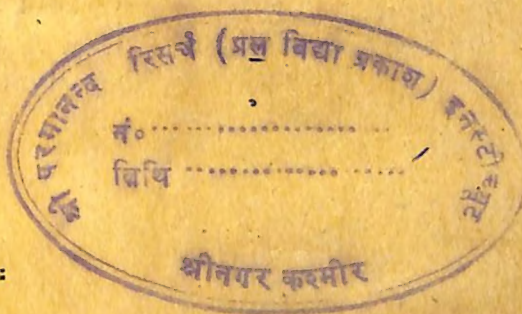 श्री परमानन्द रिसर्च (प्रत्न विद्या प्रकाश) इनस्टीट्यूट
नं० ..................
तिथि ..................
श्रीनगर कश्मीर
: